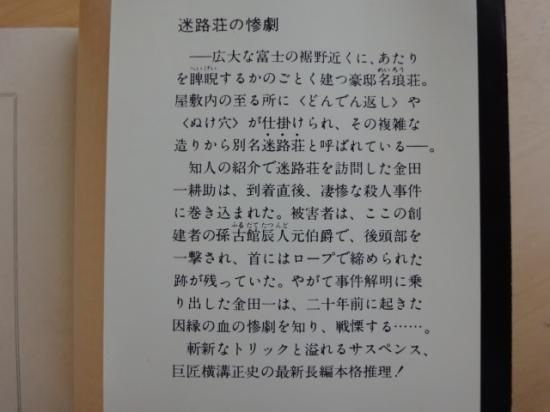 迷路荘の惨劇
――広大な富士の裾野近くに、あたり
を睥睨するかのごとく建つ豪邸名琅荘。
屋敷内の至る所に〈どんでん返し〉や
〈ぬけ穴〉が仕掛けられ、その複雑な
造りから別名迷路荘と呼ばれている――。
知人の紹介で迷路荘を訪問した金田
一耕助は、到着直後、凄惨な殺人事件
に巻き込まれた。被害者は、ここの創
建者の孫古館辰人元伯爵で、後頭部を
一撃され、首にはロープで締められた
跡が残っていた。やがて事件解明に乗
り出した金田一は、二十年前に起きた
因縁の血の惨劇を知り、戦慄する……。
斬新なトリックと溢れるサスペンス、
巨匠横溝正史の最新長編本格推理!